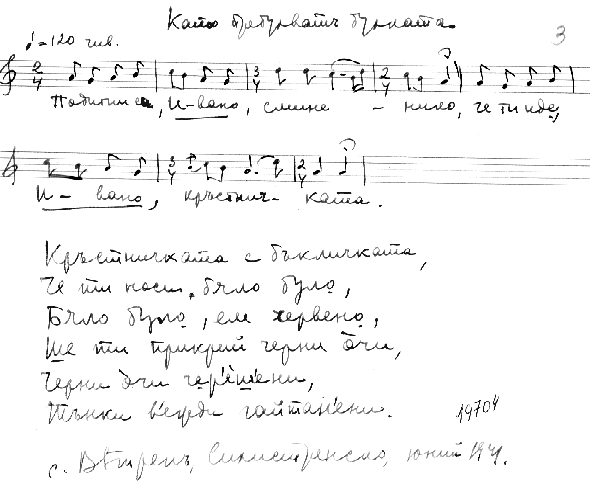 Като пребулватъ булката
3
♩=120 чив.
Подигни са, Ивано, смине - нило, че ти иде,
И - вано, кръстнич - ката.
Кръстничката с бъкличката,
Че ти носи, бяло було,
Бяло було, ем червено,
Ше ти прикрий черни очи,
Черни очи череше́ни,
Тънки ве́жди гайтане́ни.
19704
с. Вѣтренъ, Силистренско, юний